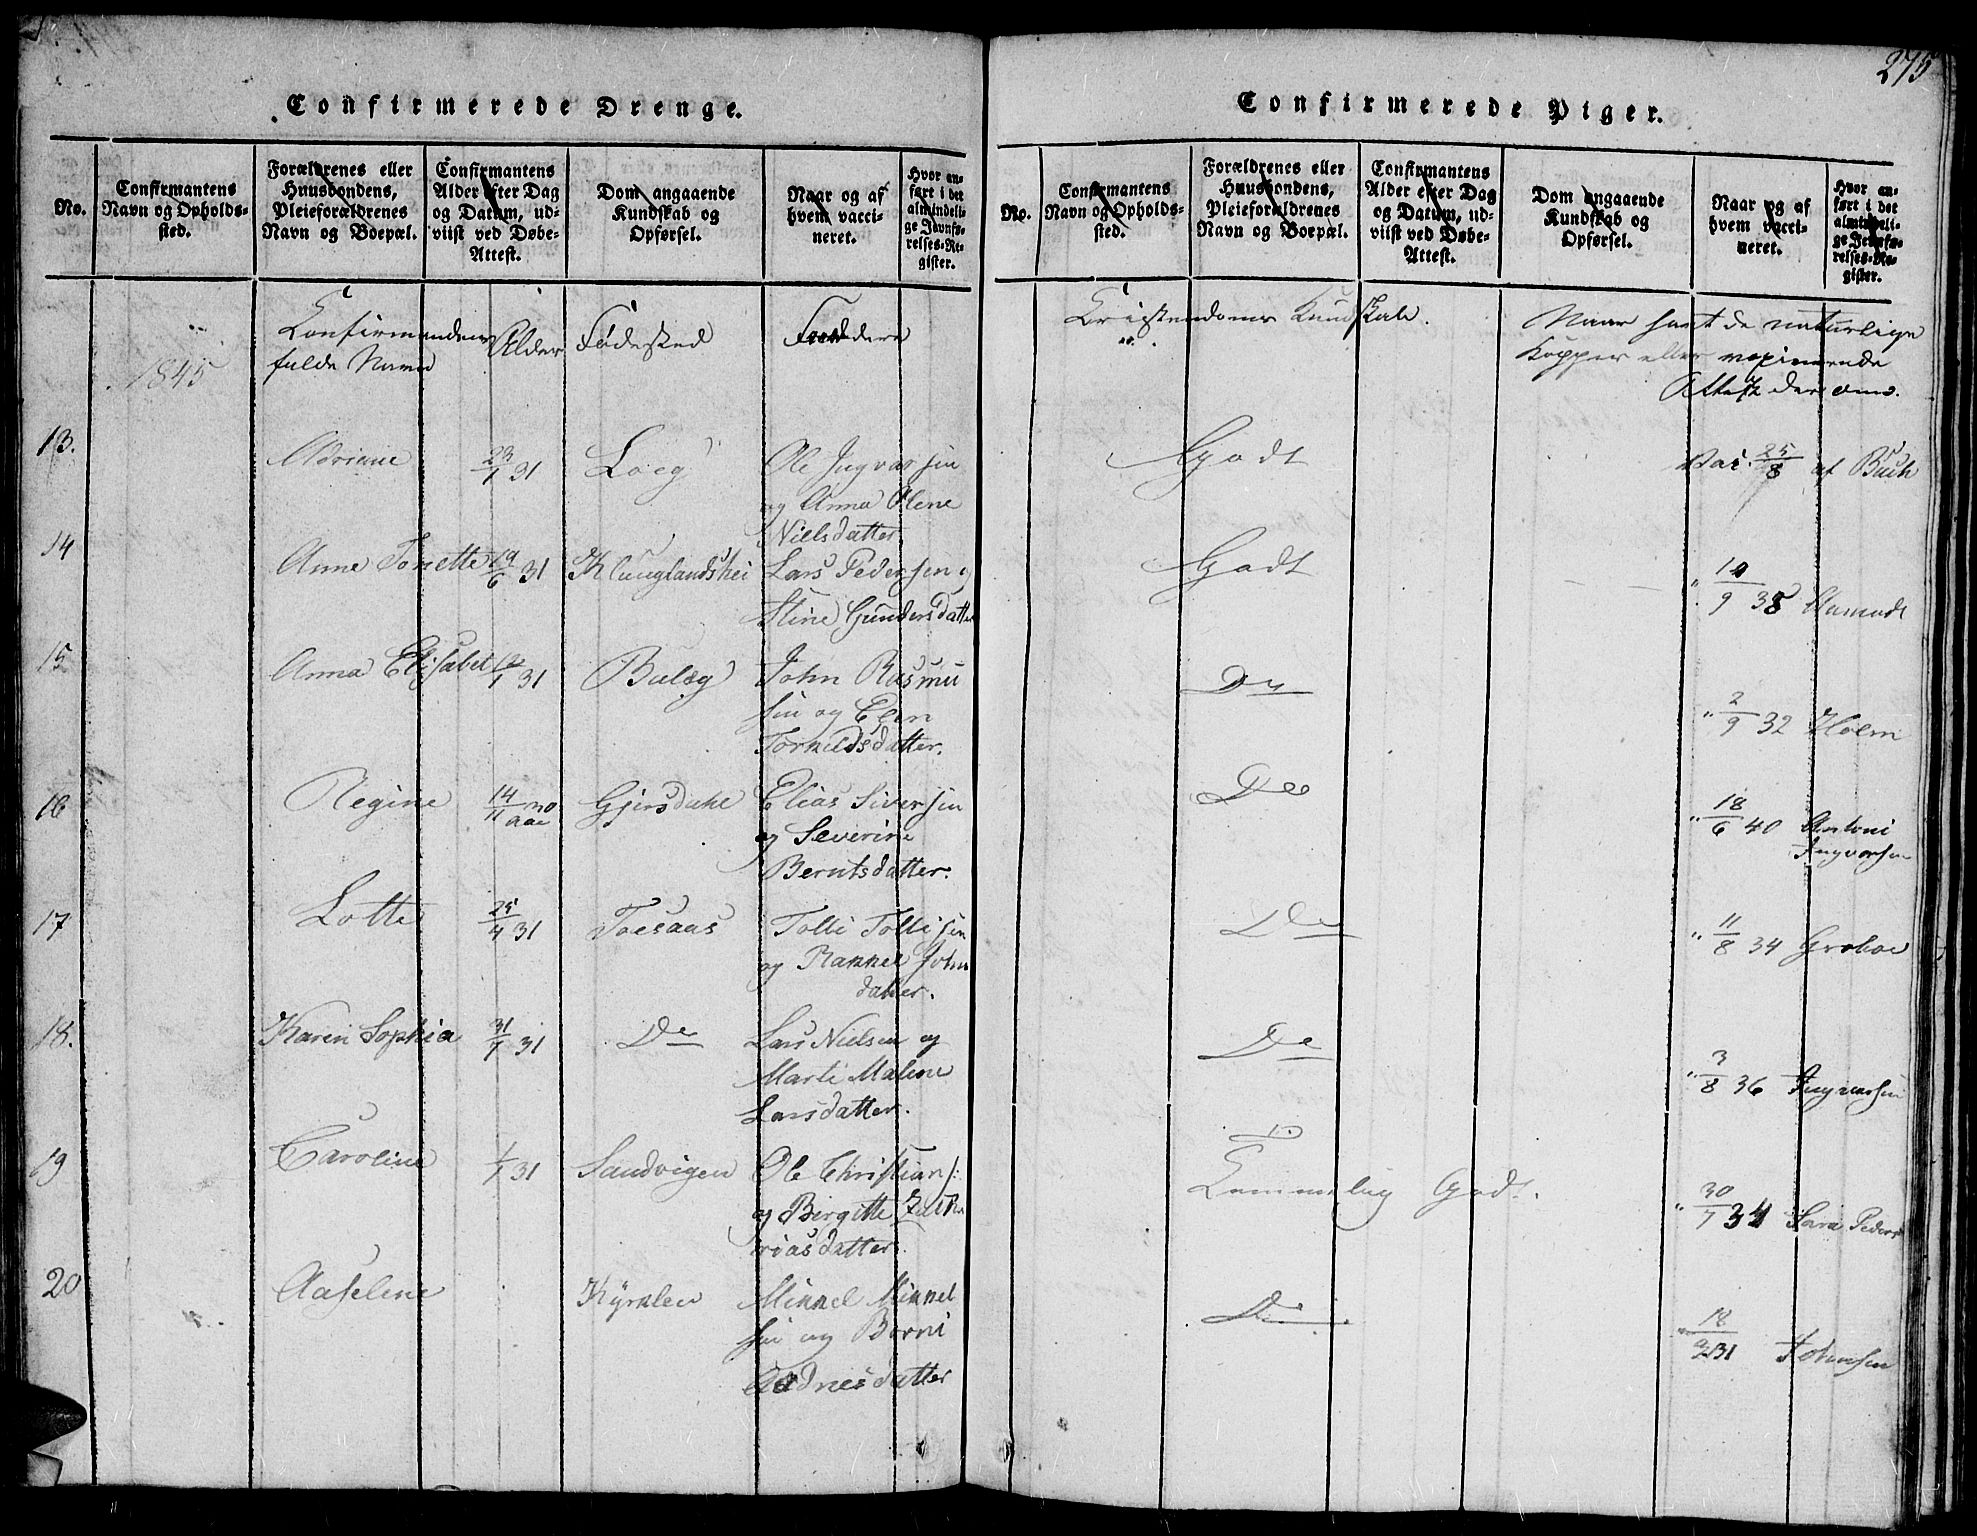 275
Confirmerede Drenge.
No.
Confirmantens
Navn og Opholds-
sted.
Forældrenes eller
Huusbondens,
Pleieforældrenes
Navn og Boepæl.
Confirmantens
Alder efter Dag
og Datum, ud-
viist ved Døbe-
Attest.
Dom angaaende
Kundskab og
Opførsel.
Naar og af
hvem vacci-
neret.
Hvor an-
ført i det
almindeli-
ge Jevnfø-
relses-Re-
gister.
1845
fulde Navn
Alder
Fødested
13. Adriane 23/1 31 Ole Ingvarsen
og Anna Olene
Nielsdatter
14 Anne Tonette 19/6 31 Lars Pedersen og
Stine Gundersdatter
15 Anna Elisabet 31 John Rasmu
sen og Elen
datter.
16 Regine 14/11 30 Gjersdahl Elias Siversen
og Severine
Berntsdatter.
17 Lotte 25/4 31 Toesaas Tolli Tollisen
og Rakkel John
datter.
18. Karen Sophia 31/7 31 Do Lars Nielsen og
Marte Malene
Larsdatter.
19 Caroline 1/1 31 Sandvigen Ole Christians:
og Birgitte
datter.
20 Aaselene Mikkel Mikkel
sen og Borni
datter
Confirmerede Piger.
No.
Confirmantens
Navn og Opholds-
sted.
Forældrenes eller
Huusbondens,
Pleieforældrenes
Navn og Boepæl.
Confirmantens
Alder efter Dag
og Datum, ud-
viist ved Døbe-
Attest.
Dom angaaende
Kundskab og
Opførsel.
Naar og af
hvem vacci-
neret.
Hvor an-
ført i det
almindeli-
ge Jevnfø-
relses-Re-
gister.
Kristendoms Kundskab.
Naar havt de naturlige
Kopper eller
Attest derom.
Godt Vac. 25/8 af Buch
Godt " 10/9 38 Aamodt
Do " 2/9 32 Holm
Do " 18/6 40 Antoni
Ingvarsen
Do " 11/8 34 Groboe
Do " 3/8 36 Ingvarsen
Temmelig Godt. " 30/7 34 Sara Peders
Do 18/9 31 Johnsen